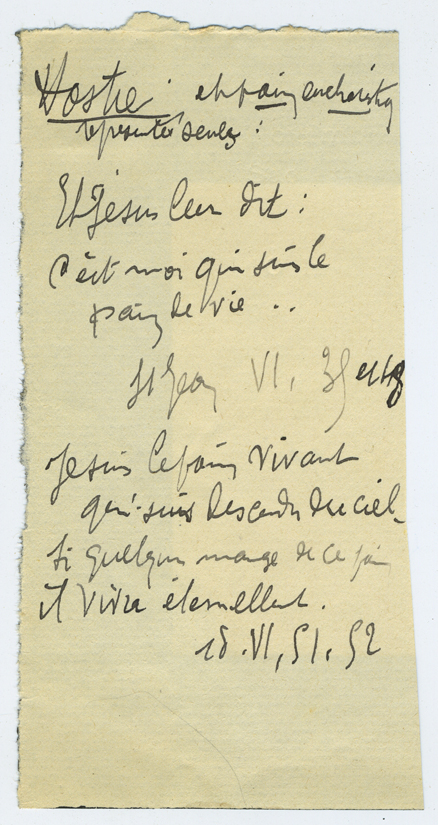 Hostie : et pain eucharistiq
représentés seuls :
Et Jésus leur dit :
c'est moi qui suis le
pain de vie ..
St Jean VI. 35 et 48
Je suis le pain vivant
qui suis descendu du ciel_
Si quelqu'un mange de ce pain
il vivra éternellent.
id. VI, 51. 52